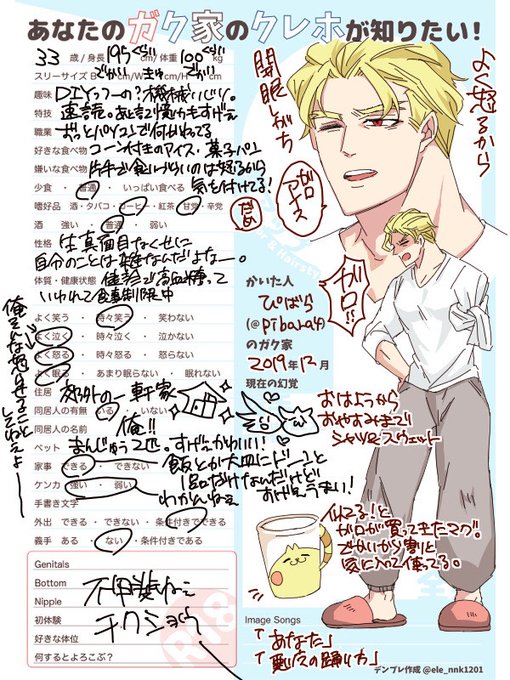 あなたのガク家のクレホが知りたい!
33 歳 / 身長 195ぐらい cm / 体重 100ぐらい kg
スリーサイズ B でかい cm/W cm/H でかい
趣味 DIYっつーの?機械いじり。
特技 速読。あと記憶力もすげぇ
職業 ずっとパソコンで何かやってる
好きな食べ物 コーン付きのアイス・菓子パン
嫌いな食べ物 片手で食いづらいのは怒るから
気を付けてる!
少食 ・ 普通 ・ いっぱい食べる
嗜好品 酒・タバコ・コーヒー・紅茶・甘党・辛党
酒 強い ・ 普通 ・ 弱い
性格 生真面目なくせに
自分のことは雑なんだよなー。
体質・健康状態 健診で高血糖って
いわれて食事制限中
よく笑う ・ 時々笑う ・ 笑わない
よく泣く ・ 時々泣く ・ 泣かない
よく怒る ・ 時々怒る ・ 怒らない
よく眠る ・ あまり眠らない ・ 眠れない
住居 郊外の一軒家
同居人の有無 いる ・ いない
同居人の名前 俺!!
ペット まんじゅう2匹。すげぇかわいい!
家事 できる ・ できない
飯とか大皿にドーンと
1品だけなんだけど
すげぇうまい!
ケンカ 強い ・ 弱い
わかんねぇ
手書き文字
外出 できる ・ できない ・ 条件付きでできる
義手 ある ・ ない ・ 条件付きである
Genitals
Bottom
Nipple
初体験
好きな体位
何するとよろこぶ?
R18
不甲斐ねぇ
チクショウ
よく怒るから
開眼しがち
ガロ
アイス
だめ
ガロ!!
かいた人
ぴばら
(@pibara4)
のガク家
2019年12月
現在の幻覚
おはようから
おやすみまで
シャツ&スウェット
似てる!と
ガロが買ってきたマグ。
でかいから割と
気に入って使ってる。
Image Songs
「あなた」
テンプレ作成 @ele_nnk1201